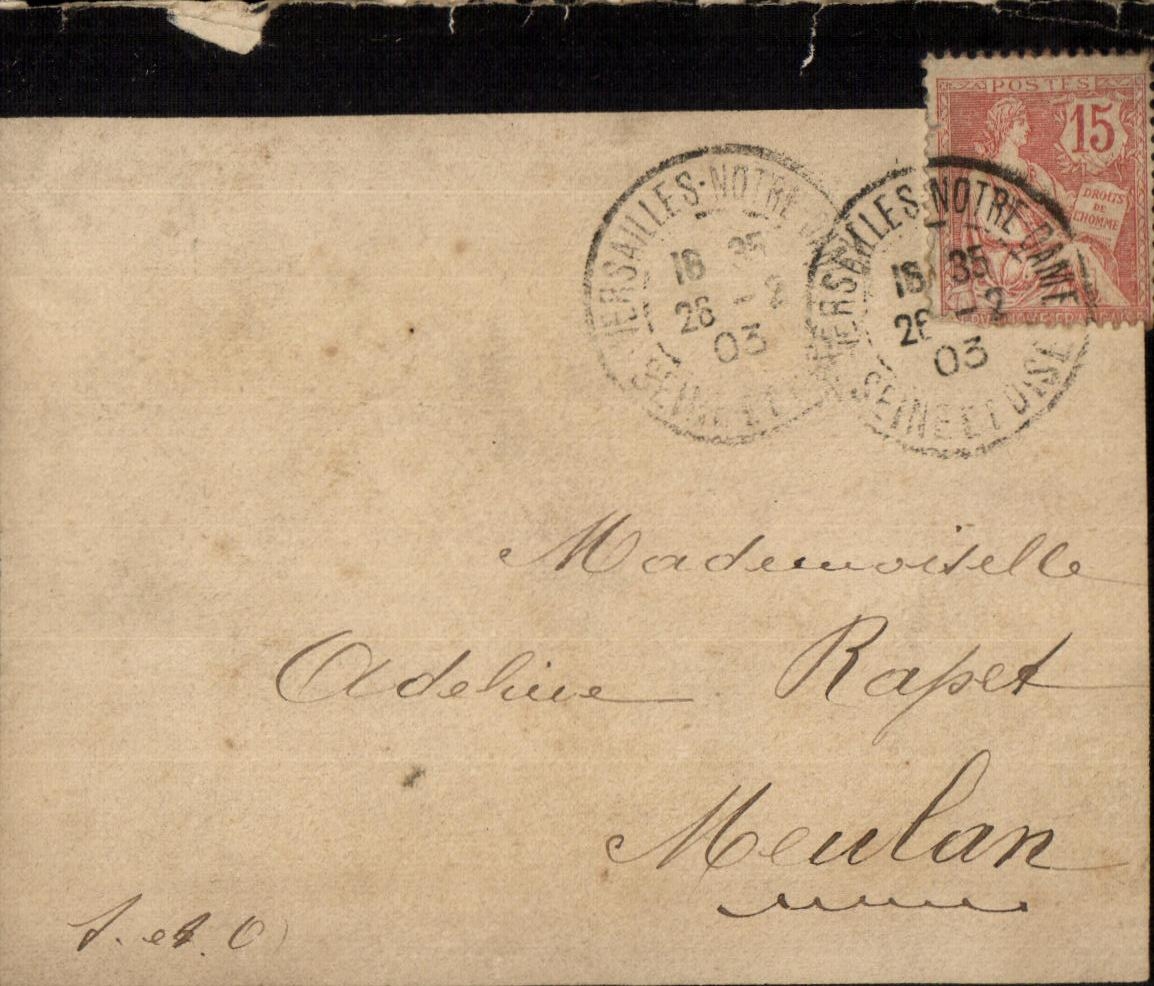 POSTES
15
DROITS
DE
L'HOMME
VERSAILLES-NOTRE-DAME
18 35
26 - 2
03
SEINE ET
VERSAILLES-NOTRE-DAME
18 35
26 - 2
03
SEINE ET OISE
Mademoiselle
Adeline Rapet
Meulan
S. et O